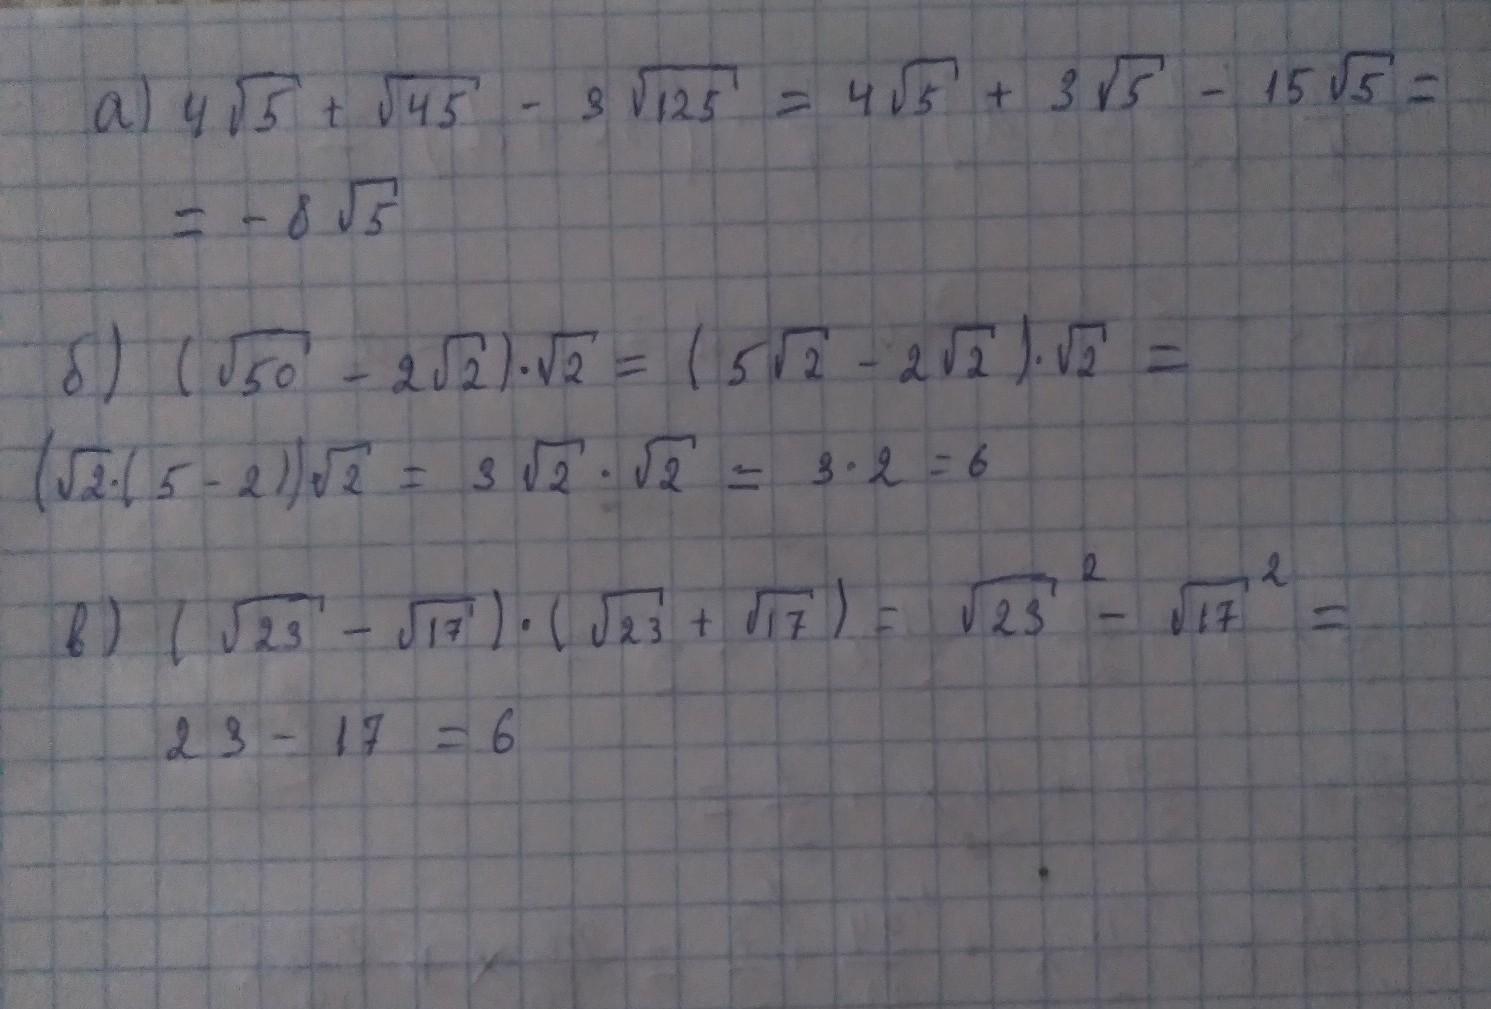 а) 4√5 + √45 - 3√125 = 4√5 + 3√5 - 15√5 =
= - 8√5
б) (√50 - 2√2)·√2 = (5√2 - 2√2)·√2 =
(√2·(5 - 2))√2 = 3√2 · √2 = 3·2 = 6
в) (√23 - √17)·(√23 + √17) = √23² - √17² =
23 - 17 = 6